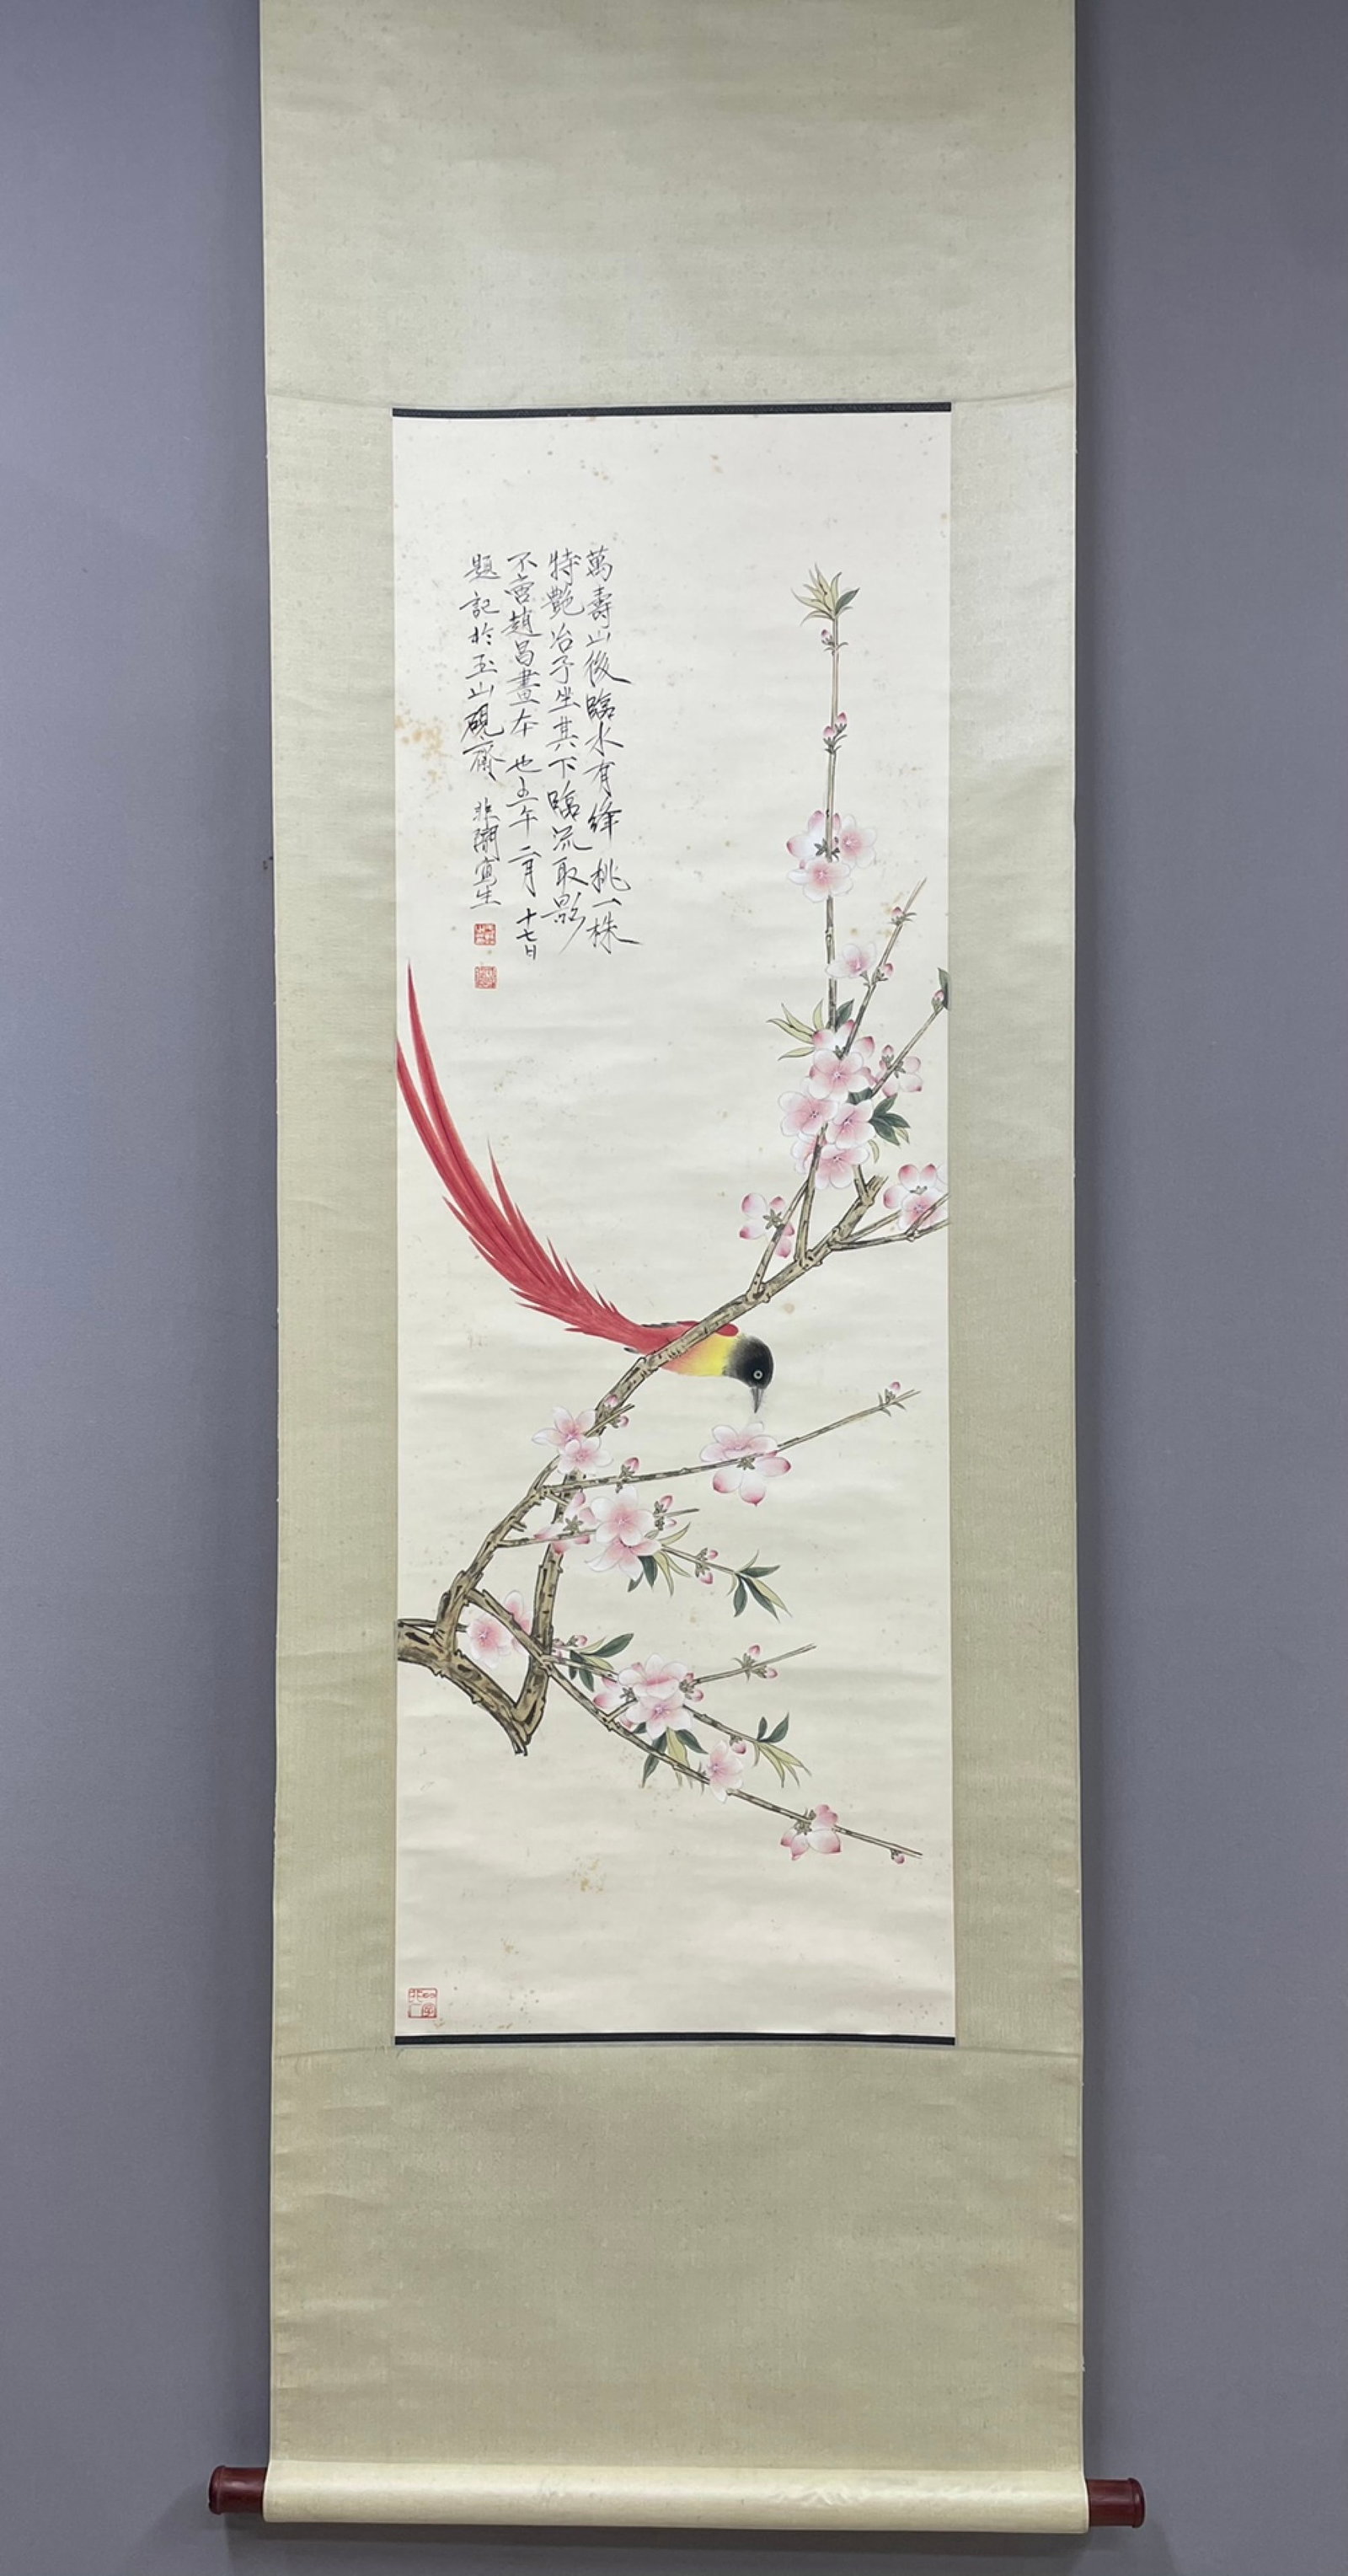 萬壽山後臨水有絳桃一株
特艷冶予坐其下臨流取影
不啻趙昌畫本也 午二月十七日
題記於玉山硯齋 非闇寫生